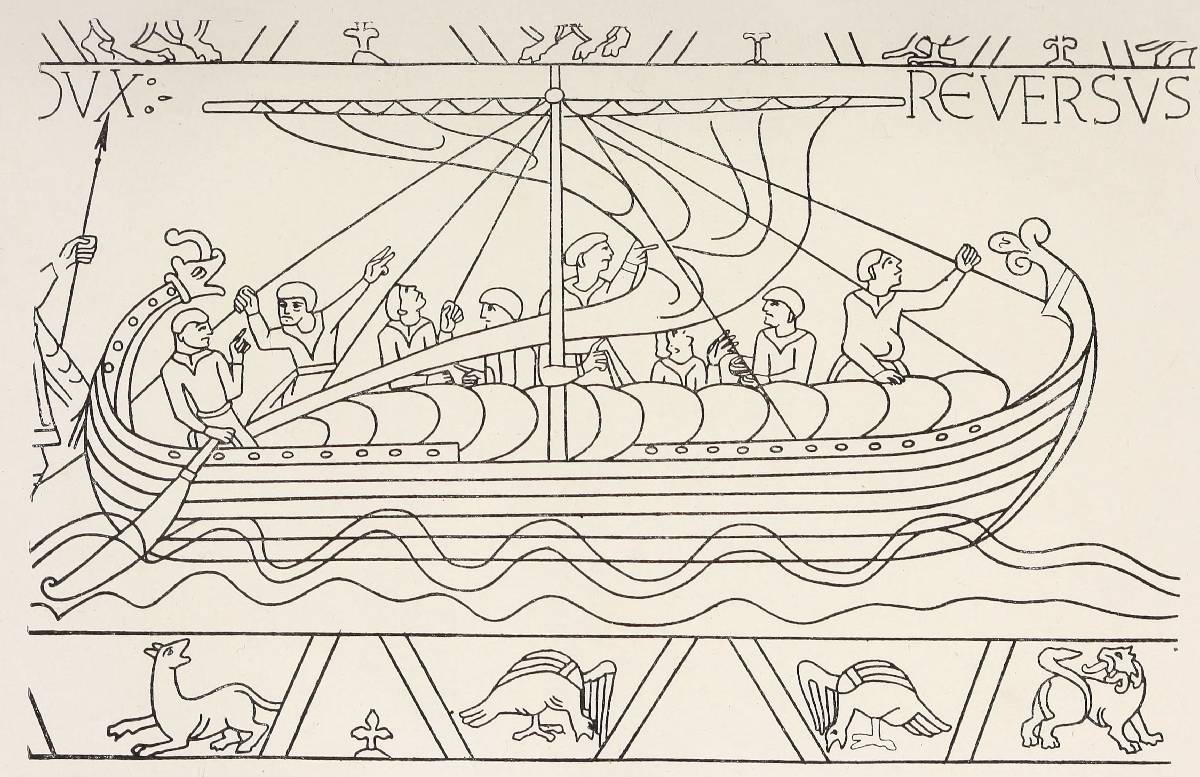 DUX:
REVERSVS